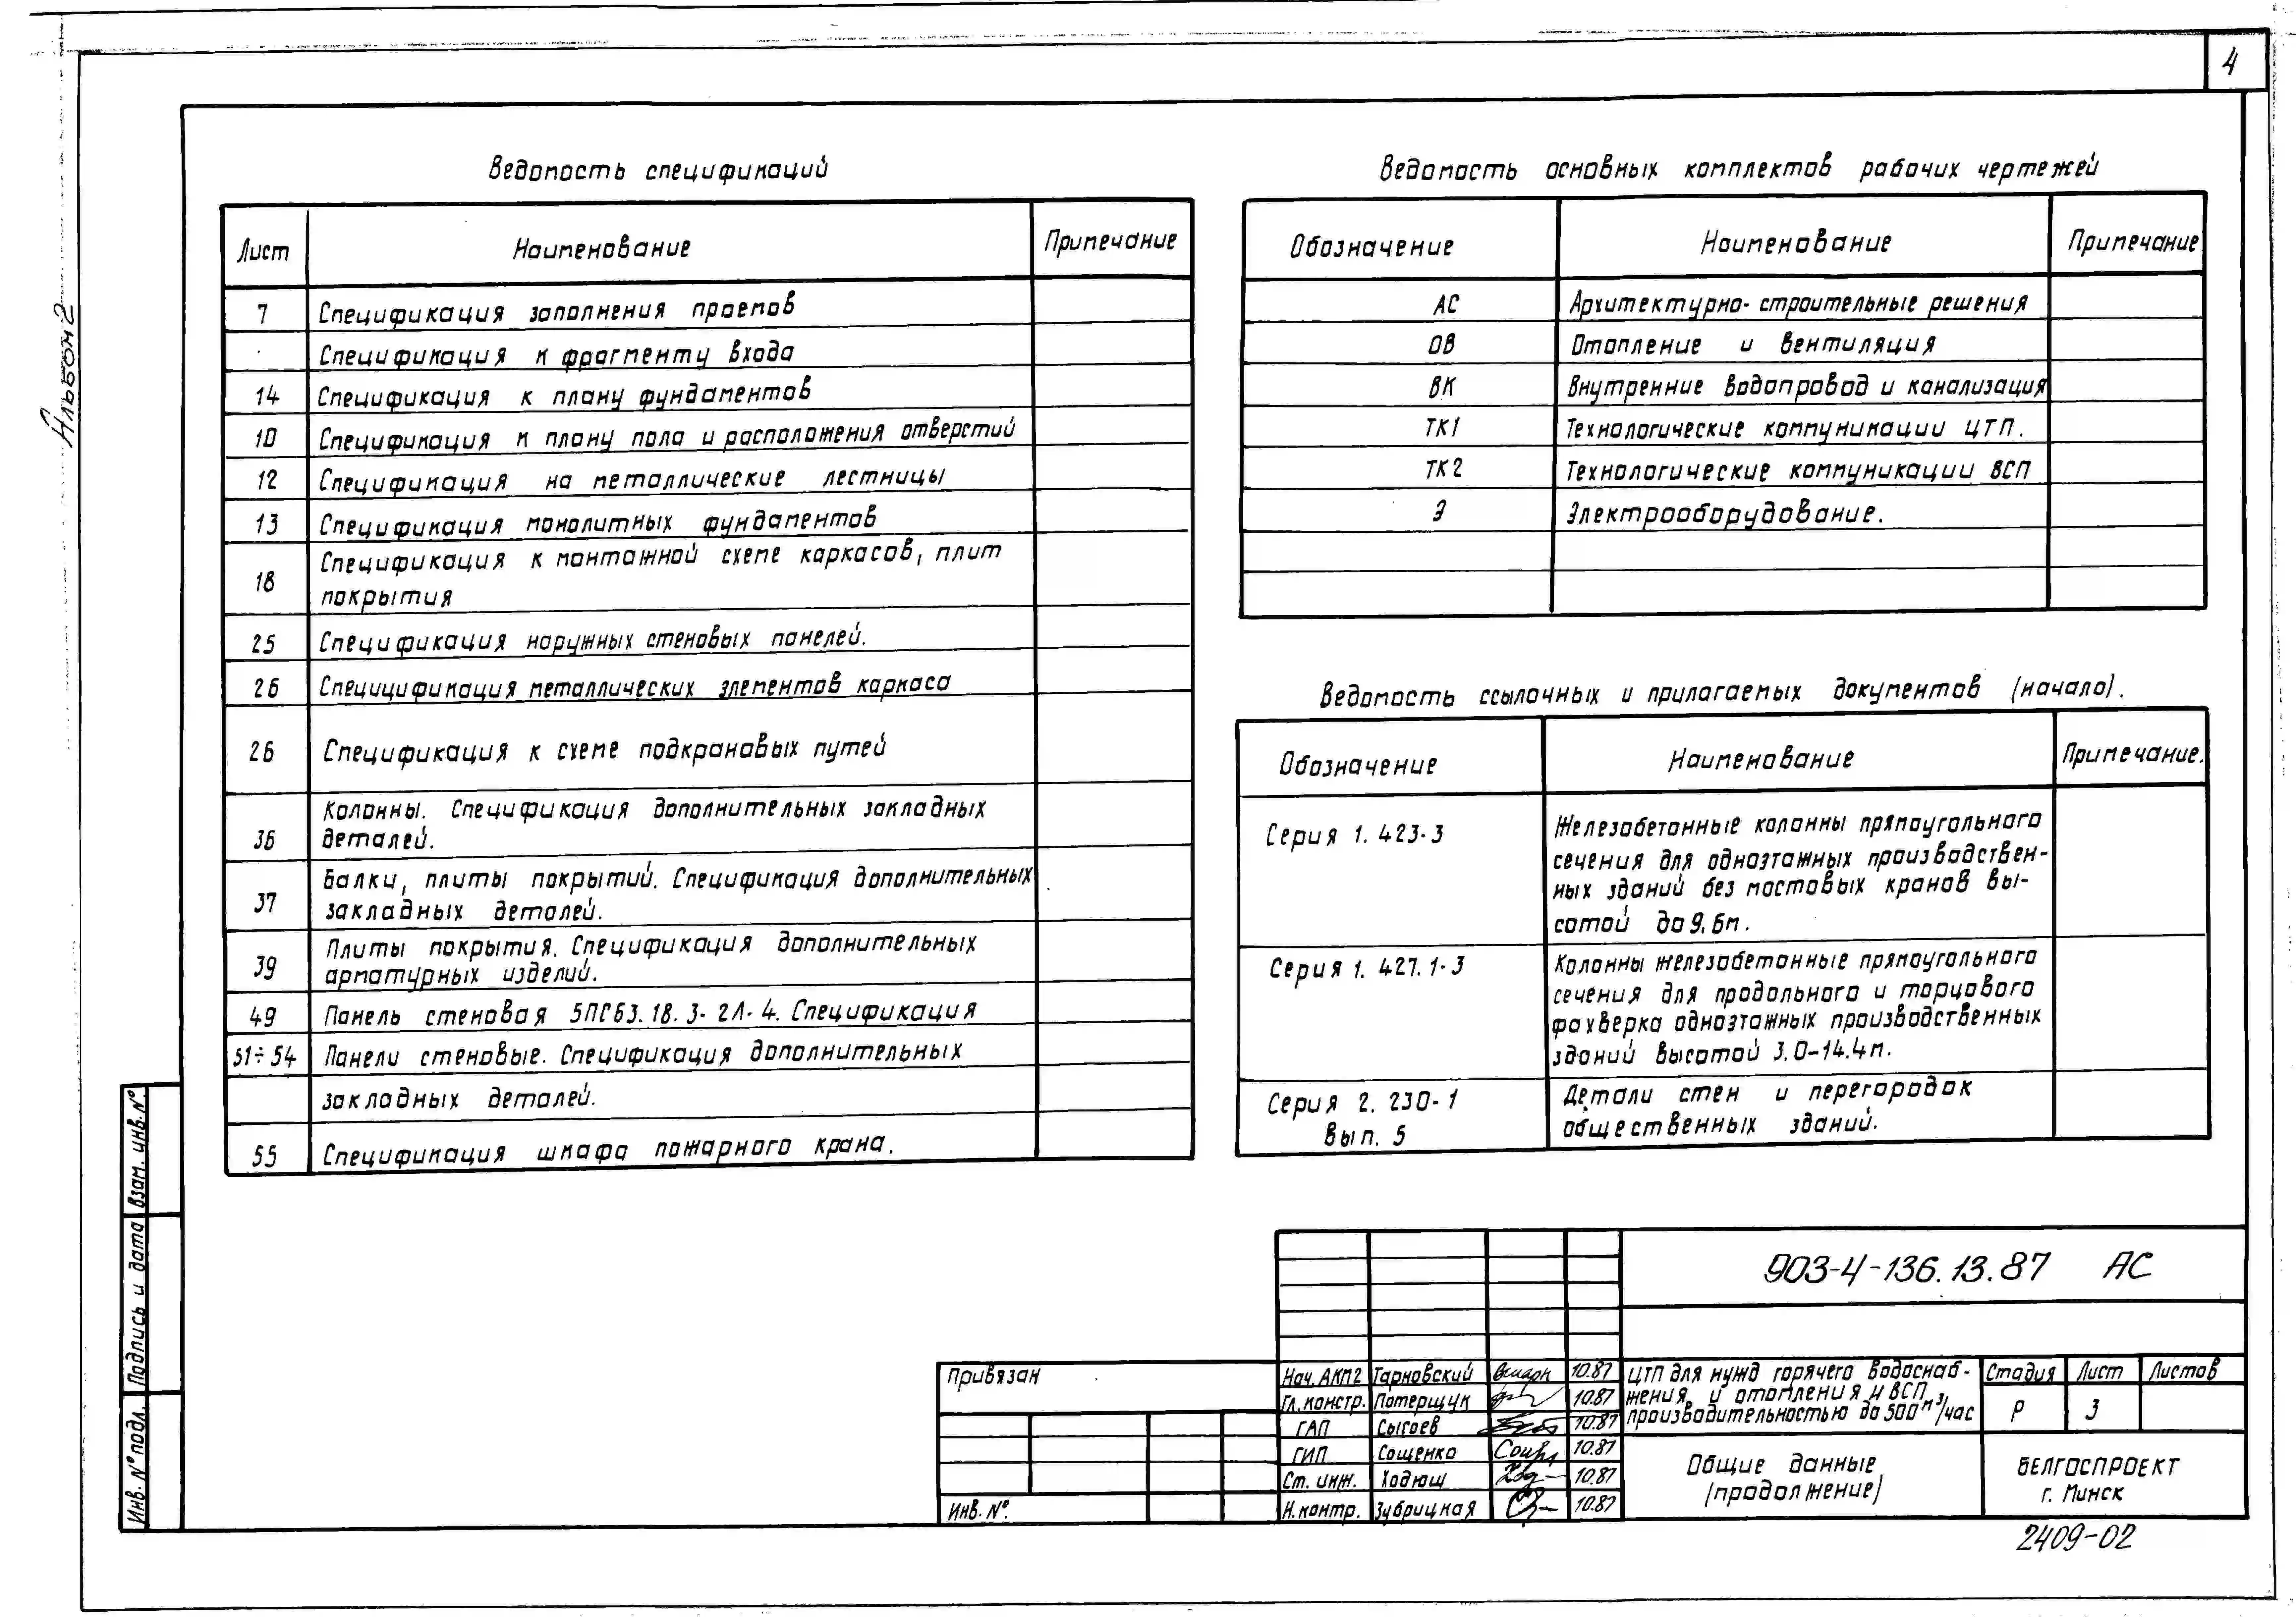 4
Альбом 2
Ведомость спецификаций
Лист Наименование Примечание
7 Спецификация заполнения проемов
Спецификация к фрагменту входа
14 Спецификация к плану фундаментов
10 Спецификация к плану пола и расположения отверстий
12 Спецификация на металлические лестницы
13 Спецификация монолитных фундаментов
18 Спецификация к монтажной схеме каркасов, плит
покрытия
25 Спецификация наружных стеновых панелей.
26 Специцификация металлических элементов каркаса
26 Спецификация к схеме подкрановых путей
36 Колонны. Спецификация дополнительных закладных
деталей.
37 Балки, плиты покрытий. Спецификация дополнительных
закладных деталей.
39 Плиты покрытия. Спецификация дополнительных
арматурных изделий.
49 Панель стеновая 5ПС63.18.3-2Л-4. Спецификация
51÷54 Панели стеновые. Спецификация дополнительных
закладных деталей.
55 Спецификация шкафа пожарного крана.
Ведомость основных комплектов рабочих чертежей
Обозначение Наименование Примечание
АС Архитектурно-строительные решения
ОВ Отопление и вентиляция
ВК Внутренние водопровод и канализация
ТК1 Технологические коммуникации ЦТП.
ТК2 Технологические коммуникации ВСП
Э Электрооборудование.
Ведомость ссылочных и прилагаемых документов (начало).
Обозначение Наименование Примечание.
Серия 1.423-3 Железобетонные колонны прямоугольного
сечения для одноэтажных производствен-
ных зданий без мостовых кранов вы-
сотой до 9,6м.
Серия 1.427.1-3 Колонны железобетонные прямоугольного
сечения для продольного и торцового
фахверка одноэтажных производственных
зданий высотой 3.0-14.4м.
Серия 2.230-1 Детали стен и перегородок
вып. 5 общественных зданий.
Взам. инв. №
Подпись и дата
Инв. № подл.
903-4-136.13.87 АС
Привязан
Инв. №.
Нач. АКМ2 Тарновский 10.87
Гл. констр. Потерщук 10.87
ГАП Сысоев 10.87
ГИП Сощенко 10.87
Ст. инж. Ходюш 10.87
Н. контр. Зубрицкая 10.87
ЦТП для нужд горячего водоснаб-
жения и отопления и ВСП
производительностью до 500 м³/час
Стадия Лист Листов
Р 3
Общие данные
(продолжение)
БЕЛГОСПРОЕКТ
г. Минск
2409-02